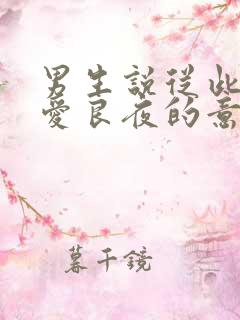 男生說從此
愛良夜的意
暮千鏡